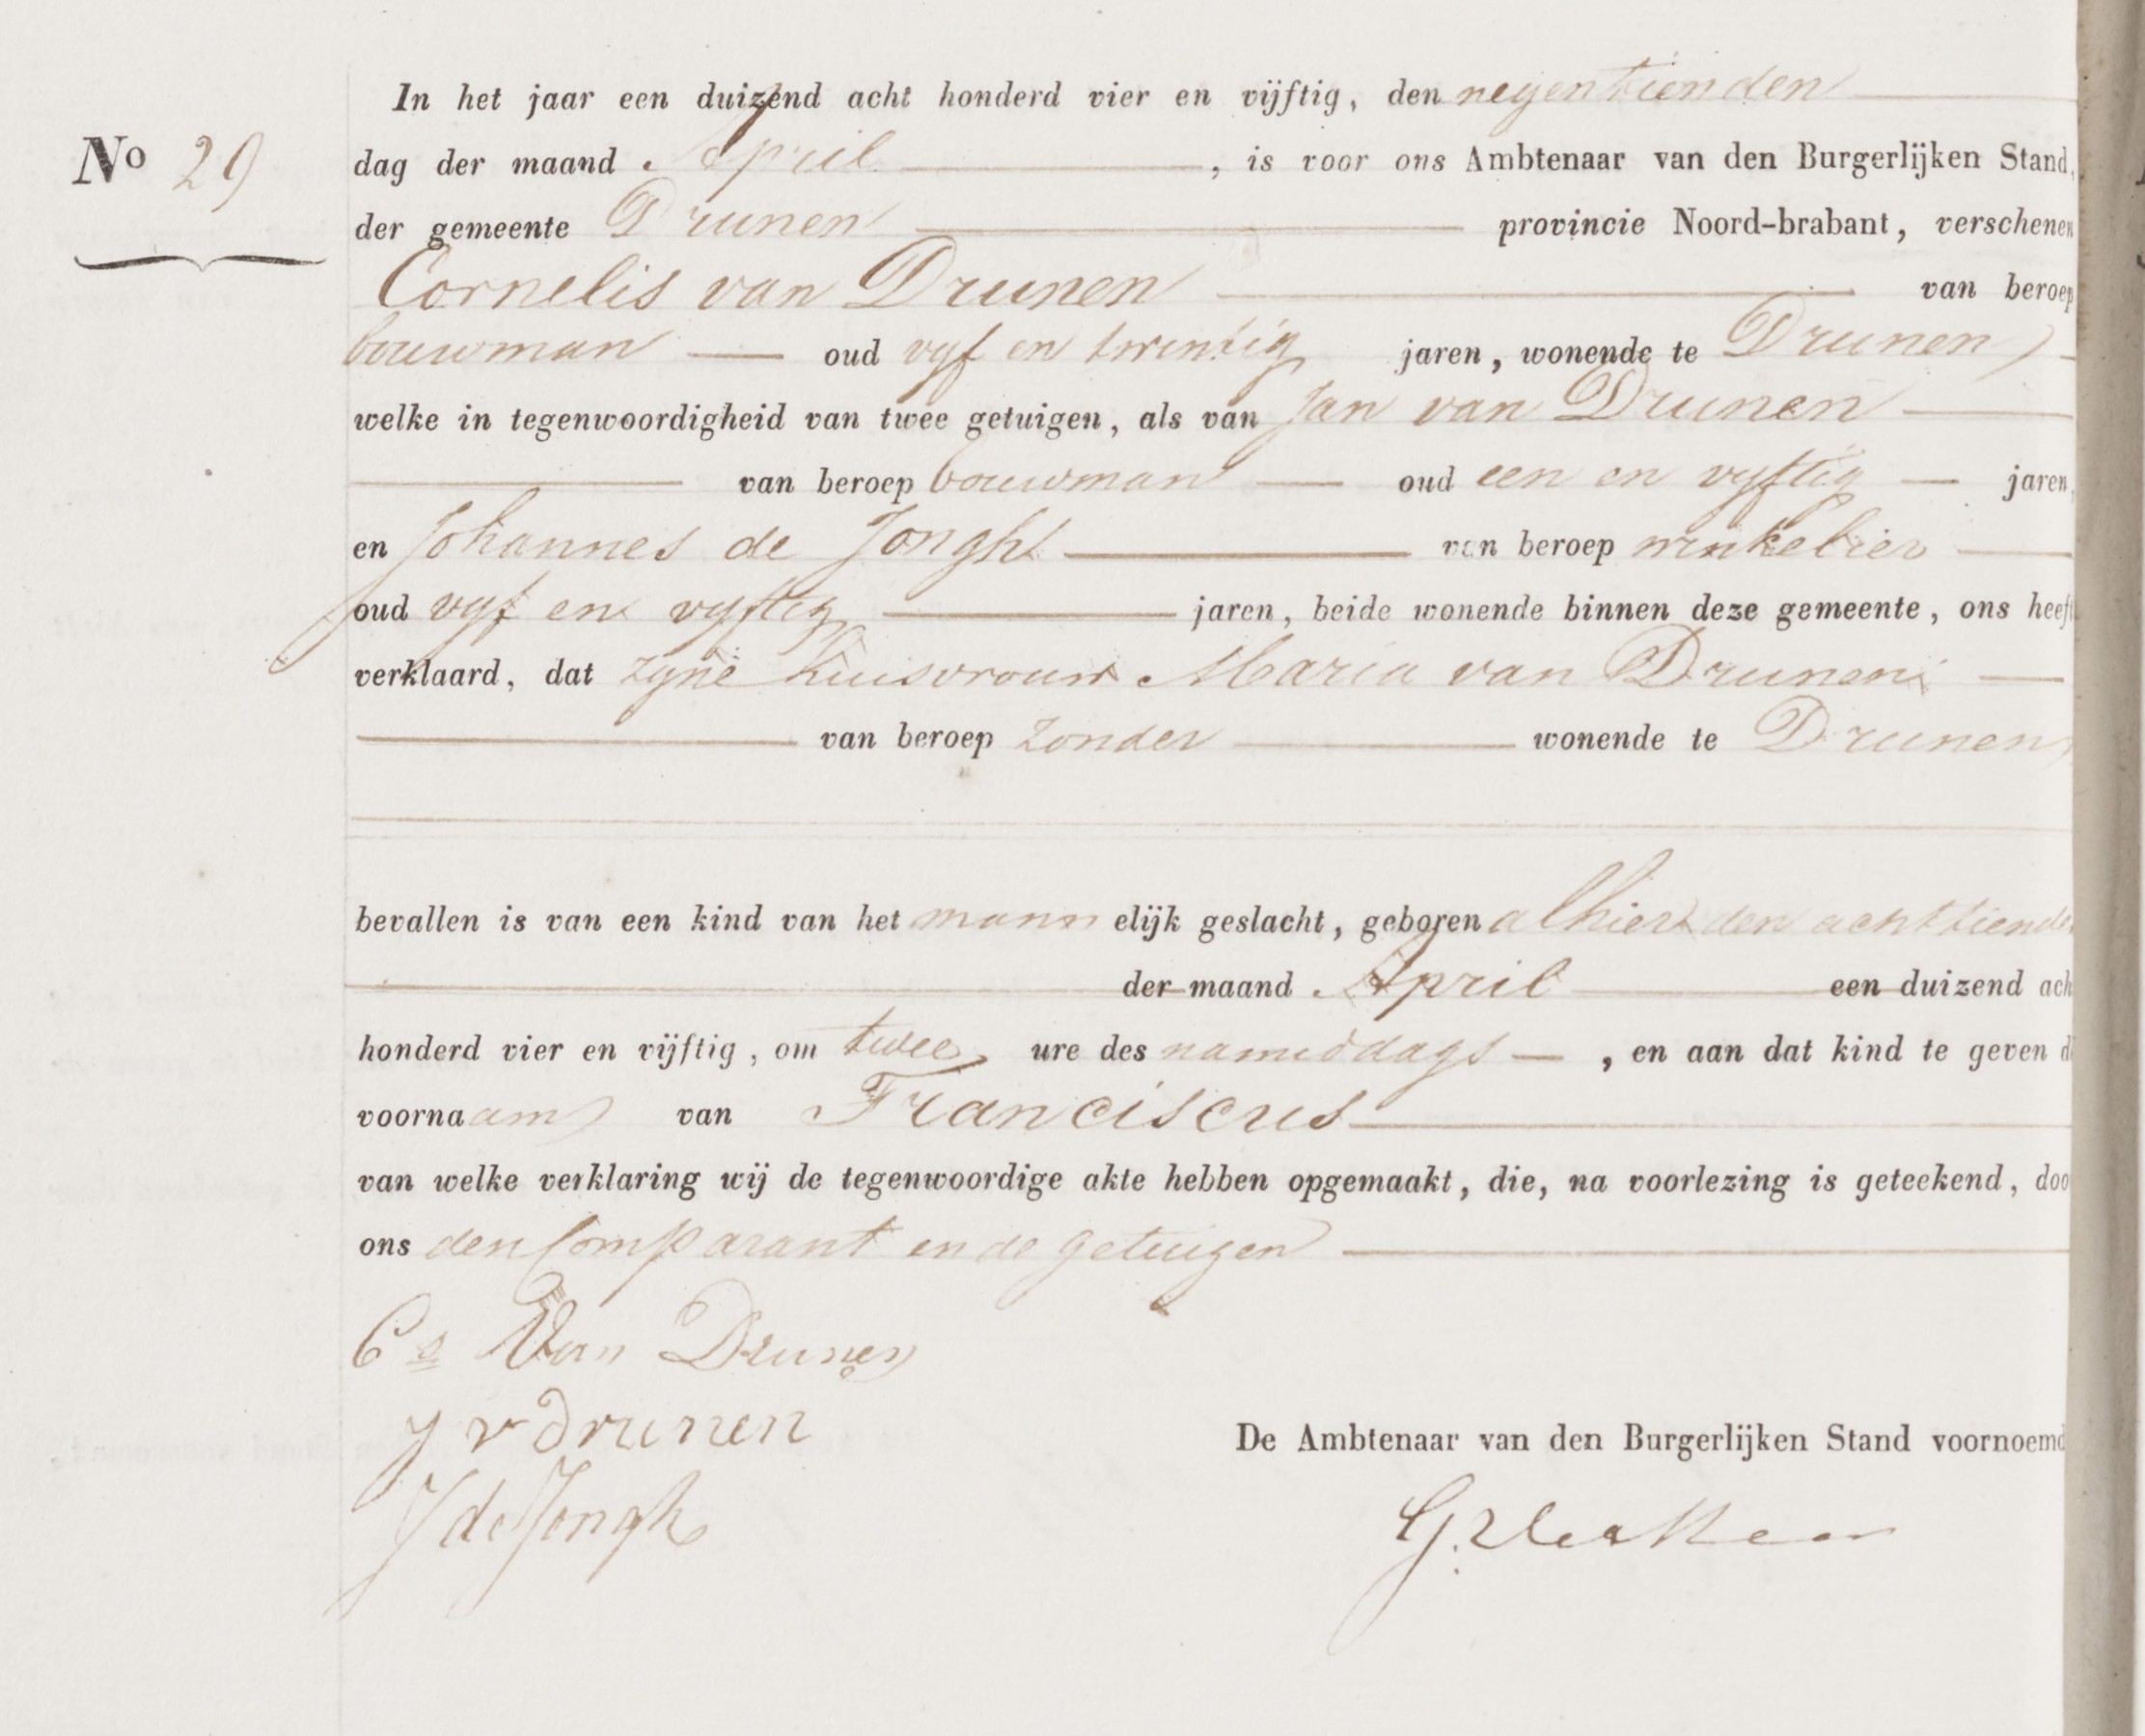 In het jaar een duizend acht honderd vier en vijftig, den negentienden
No 29
dag der maand April, is voor ons Ambtenaar van den Burgerlijken Stand,
der gemeente Drunen provincie Noord-brabant, verschenen
Cornelis van Drunen van beroep
bouwman oud vyf en twentig jaren, wonende te Drunen
welke in tegenwoordigheid van twee getuigen, als van Jan van Drunen
van beroep bouwman oud een en vyftig jaren,
en Johannes de Jongh van beroep winkelier
oud vyf en vyftig jaren, beide wonende binnen deze gemeente, ons heeft
verklaard, dat zyne huisvrouw Maria van Drunen
van beroep zonder wonende te Drunen
bevallen is van een kind van het mannelijk geslacht, geboren alhier den achttienden
der maand April een duizend ach
honderd vier en vijftig, om twee ure des namiddags, en aan dat kind te geven d
voornaam van Franciscus
van welke verklaring wij de tegenwoordige akte hebben opgemaakt, die, na voorlezing is geteekend, doo
ons den Comparant en de getuigen
Cs Van Drunen
J v Drunen
De Ambtenaar van den Burgerlijken Stand voornoemd
J de Jongh